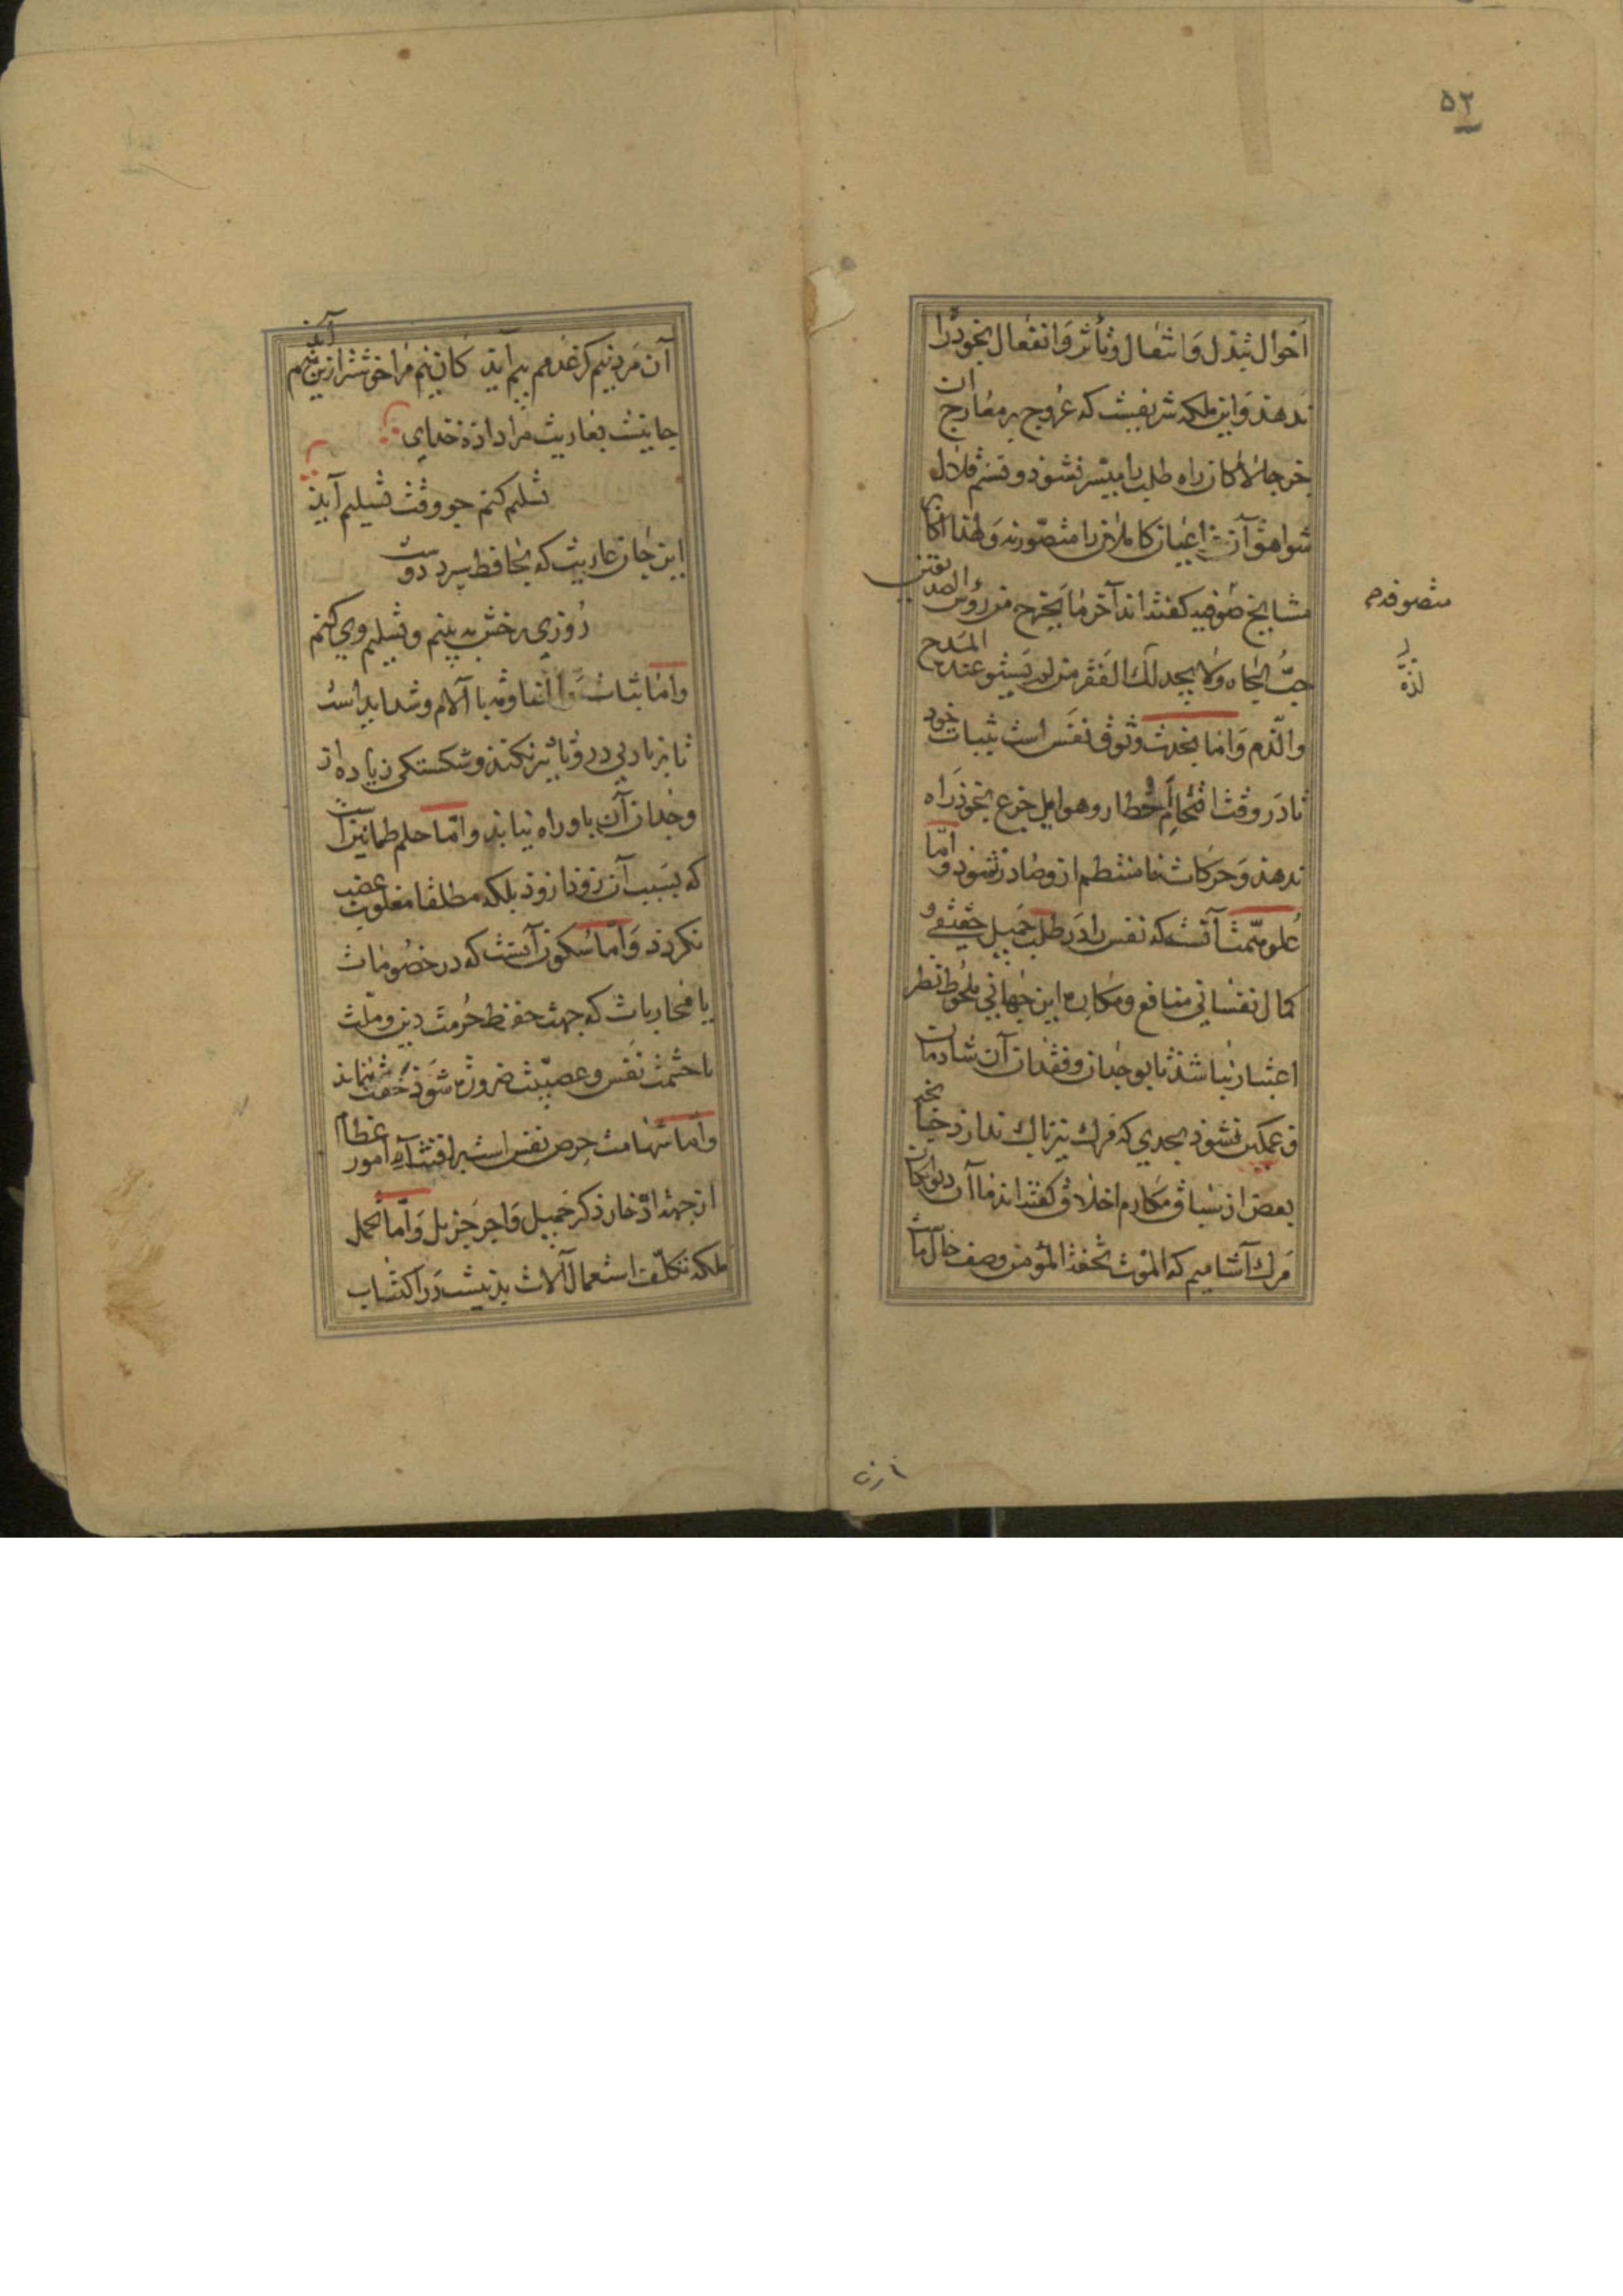 ۵۲
احوال تبدل و انتقال و تأثر و انفعال بخود را
ندهد و این ملکه شریفیست که عروج بر معارج ان
جز چالاکان راه طلب را میسر نشود و تسنم قلال
شواهق آن جز اعیان کاملان را متصور نه و لهذا اکابر
مشایخ صوفیه گفته‌اند آخر ما یخرج من رؤس الصدیقین
حبّ الجاه و لا یجد لک الفقر من لم یستو عنده المدح
والذم و اما نجدت وثوق نفس است بثبات خود
تا در وقت اقتحام اخطار و هوایل جزع بخود راه
ندهد و حرکات نامنتظم ازو صادر نشود و اما
علو همت آنست که نفس را در طلب جمیل حقیقی و
کمال نفسانی منافع و مکاره این جهانی ملحوظ نظر
اعتبار نباشد تا بوجدان و فقدان آن شادمان
و غمگین نشود بحدی که از مرگ نیز باک ندارد چنانچه
بعض از سباق مکارم اخلاق گفته‌اند ما آن دلواپکان
مرگ آشامیم که الموت تحفة المؤمن وصف حال ماست
متصوفه
لذة
آن مرد نیم کز عدمم بیم آید کان نیم مرا خوشتر ازین نیم آید
جانیست بعاریت مرا داده خدای
تسلیم کنم چو وقت تسلیم آید
این جان عاریت که بحافظ سپرد دوست
روزی رخش ببینم و تسلیم وی کنم
و اما ثبات و آن مقاومت با آلام و شداید است
تا بزیادتی درو تأثیر نکند و شکستگی زیاده از
وجدان آن باو راه نیابد و اما حلم طمانینتیست
که بسبب آن زود از و ذ بلکه مطلقا مغلوب غضب
نگردد و اما سکون آنست که در خصومات
یا محاربات که جهت حفظ حرمت دین و ملت
یا حشمت نفس و عصبیت ضرورت شود خفت ننماید
و اما شهامت حرص نفس است بر اقتناء امور عظام
از جهت ادّخار ذکر جمیل و اجر جزیل و اما تحمل
ملکه تکلّف استعمال آلات بدنیست در اکتساب